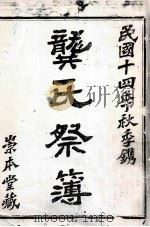 民國十四年秋季鐫
龔氏祭簿
崇本堂藏